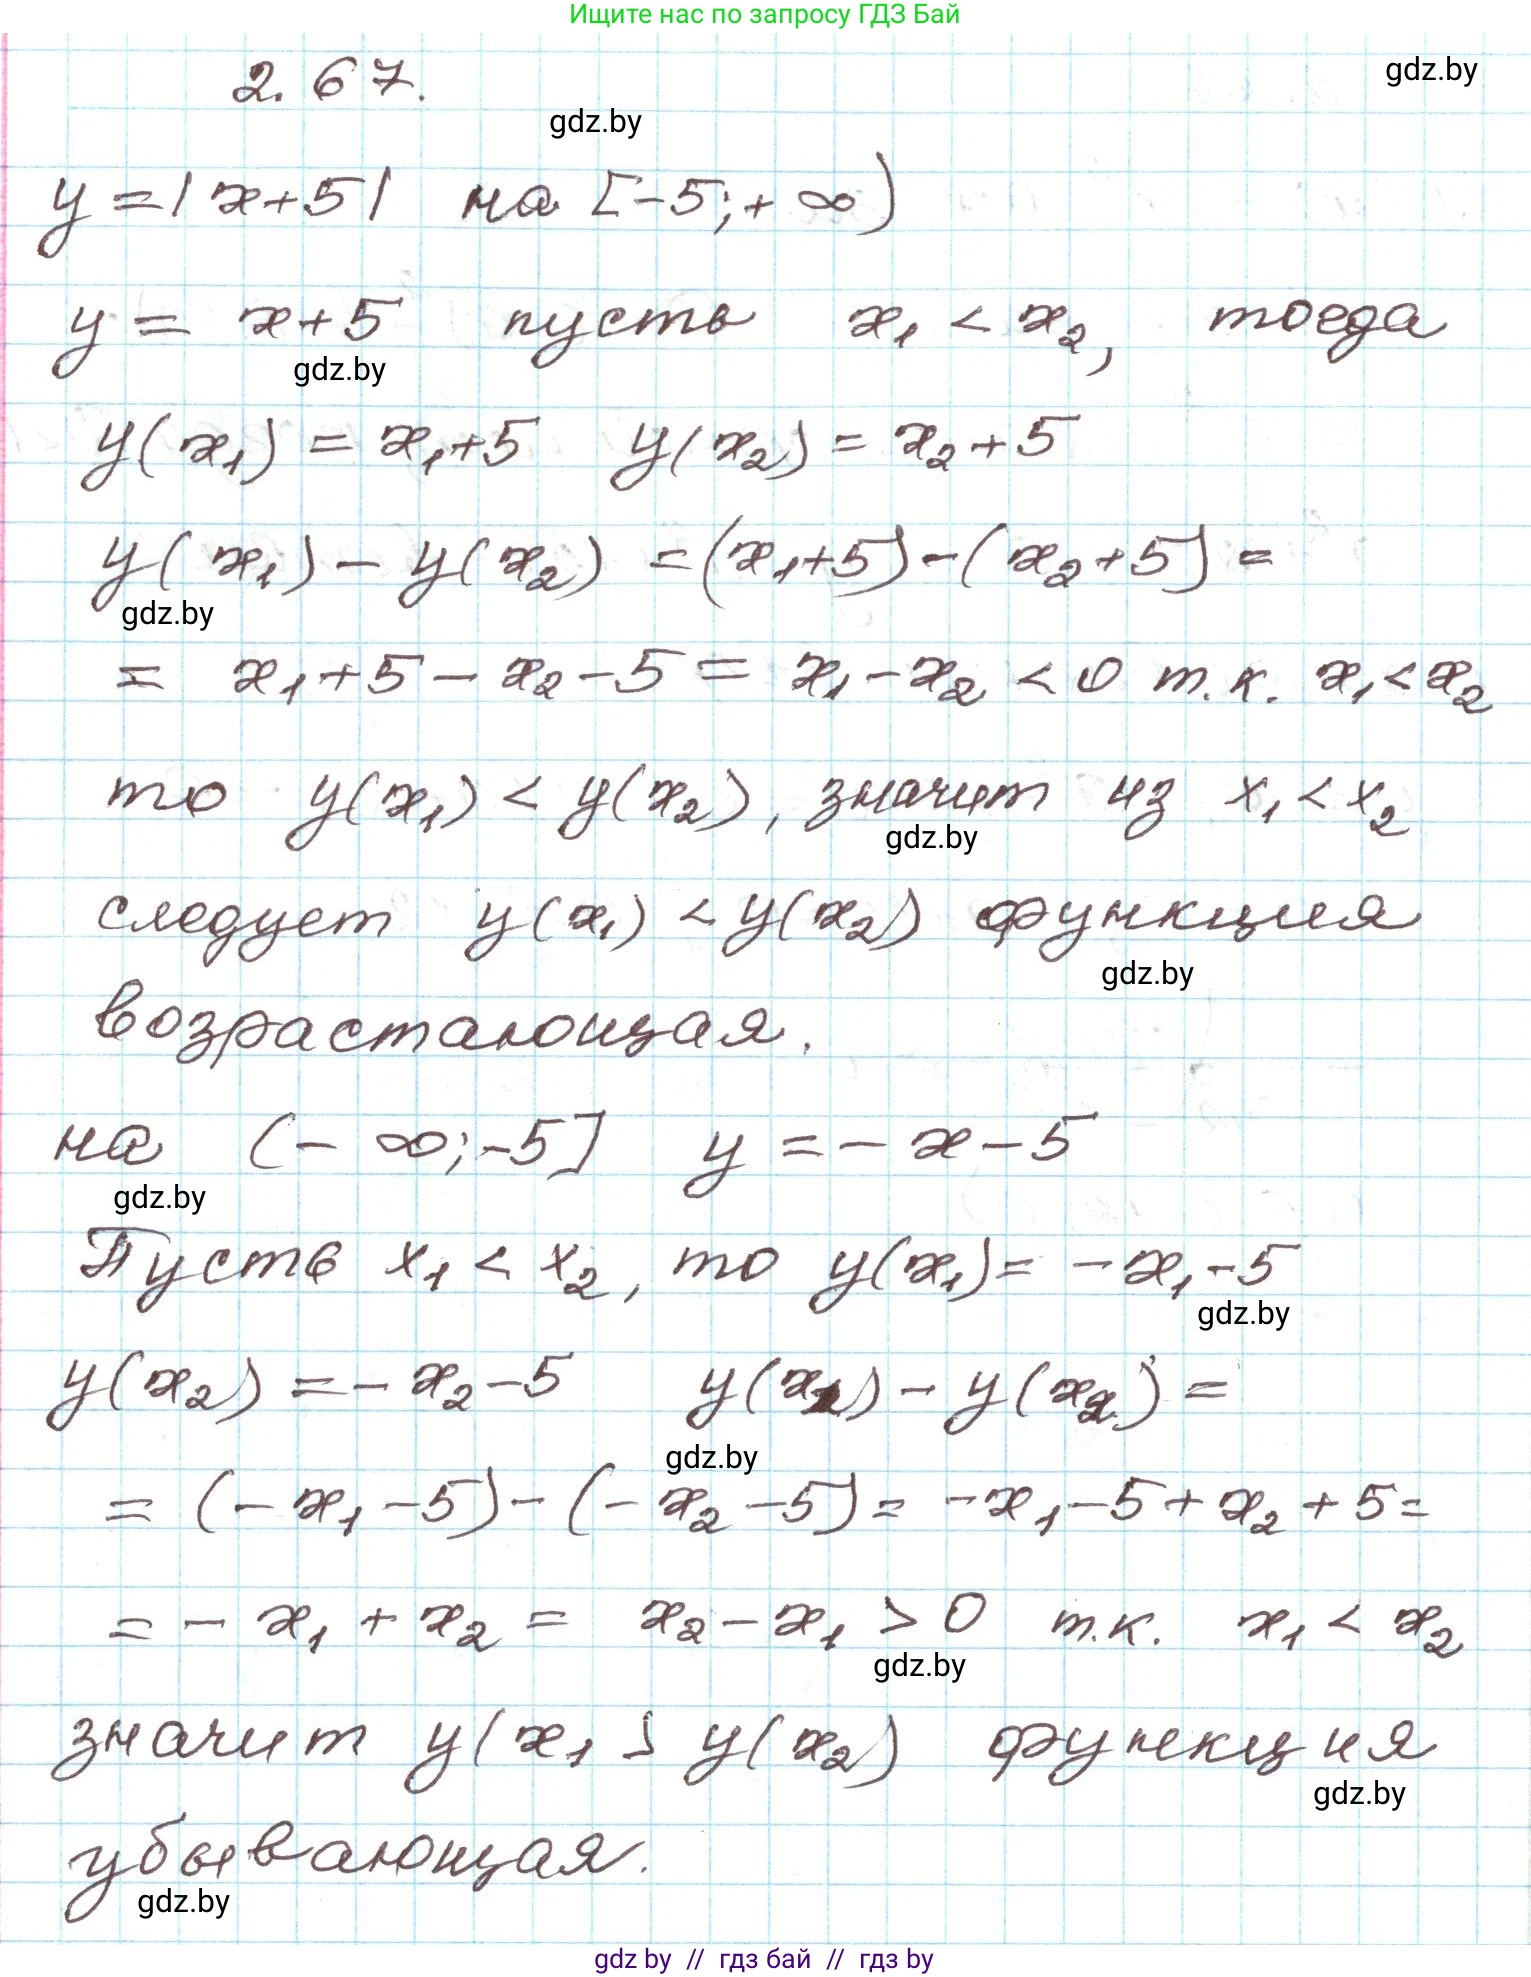 Ищите нас по запросу ГДЗ Бай
2.67.
gdz.by
gdz.by
y = |x+5| на [-5;+∞)
y = x+5 пусть x₁ < x₂, тогда
gdz.by
y(x₁) = x₁+5 y(x₂) = x₂+5
y(x₁) - y(x₂) = (x₁+5) - (x₂+5) =
gdz.by
= x₁+5 - x₂ - 5 = x₁ - x₂ < 0 т.к. x₁ < x₂
то y(x₁) < y(x₂), значит из x₁ < x₂
gdz.by
следует y(x₁) < y(x₂) функция
gdz.by
возрастающая.
на (-∞;-5] y = -x-5
gdz.by
Пусть x₁ < x₂, то y(x₁) = -x₁-5
gdz.by
y(x₂) = -x₂-5 y(x₁) - y(x₂) =
gdz.by
= (-x₁-5) - (-x₂-5) = -x₁-5+x₂+5 =
= -x₁ + x₂ = x₂ - x₁ > 0 т.к. x₁ < x₂
gdz.by
значит y(x₁) y(x₂) функция
gdz.by
убывающая.
gdz.by
gdz by // гдз бай // гдз by